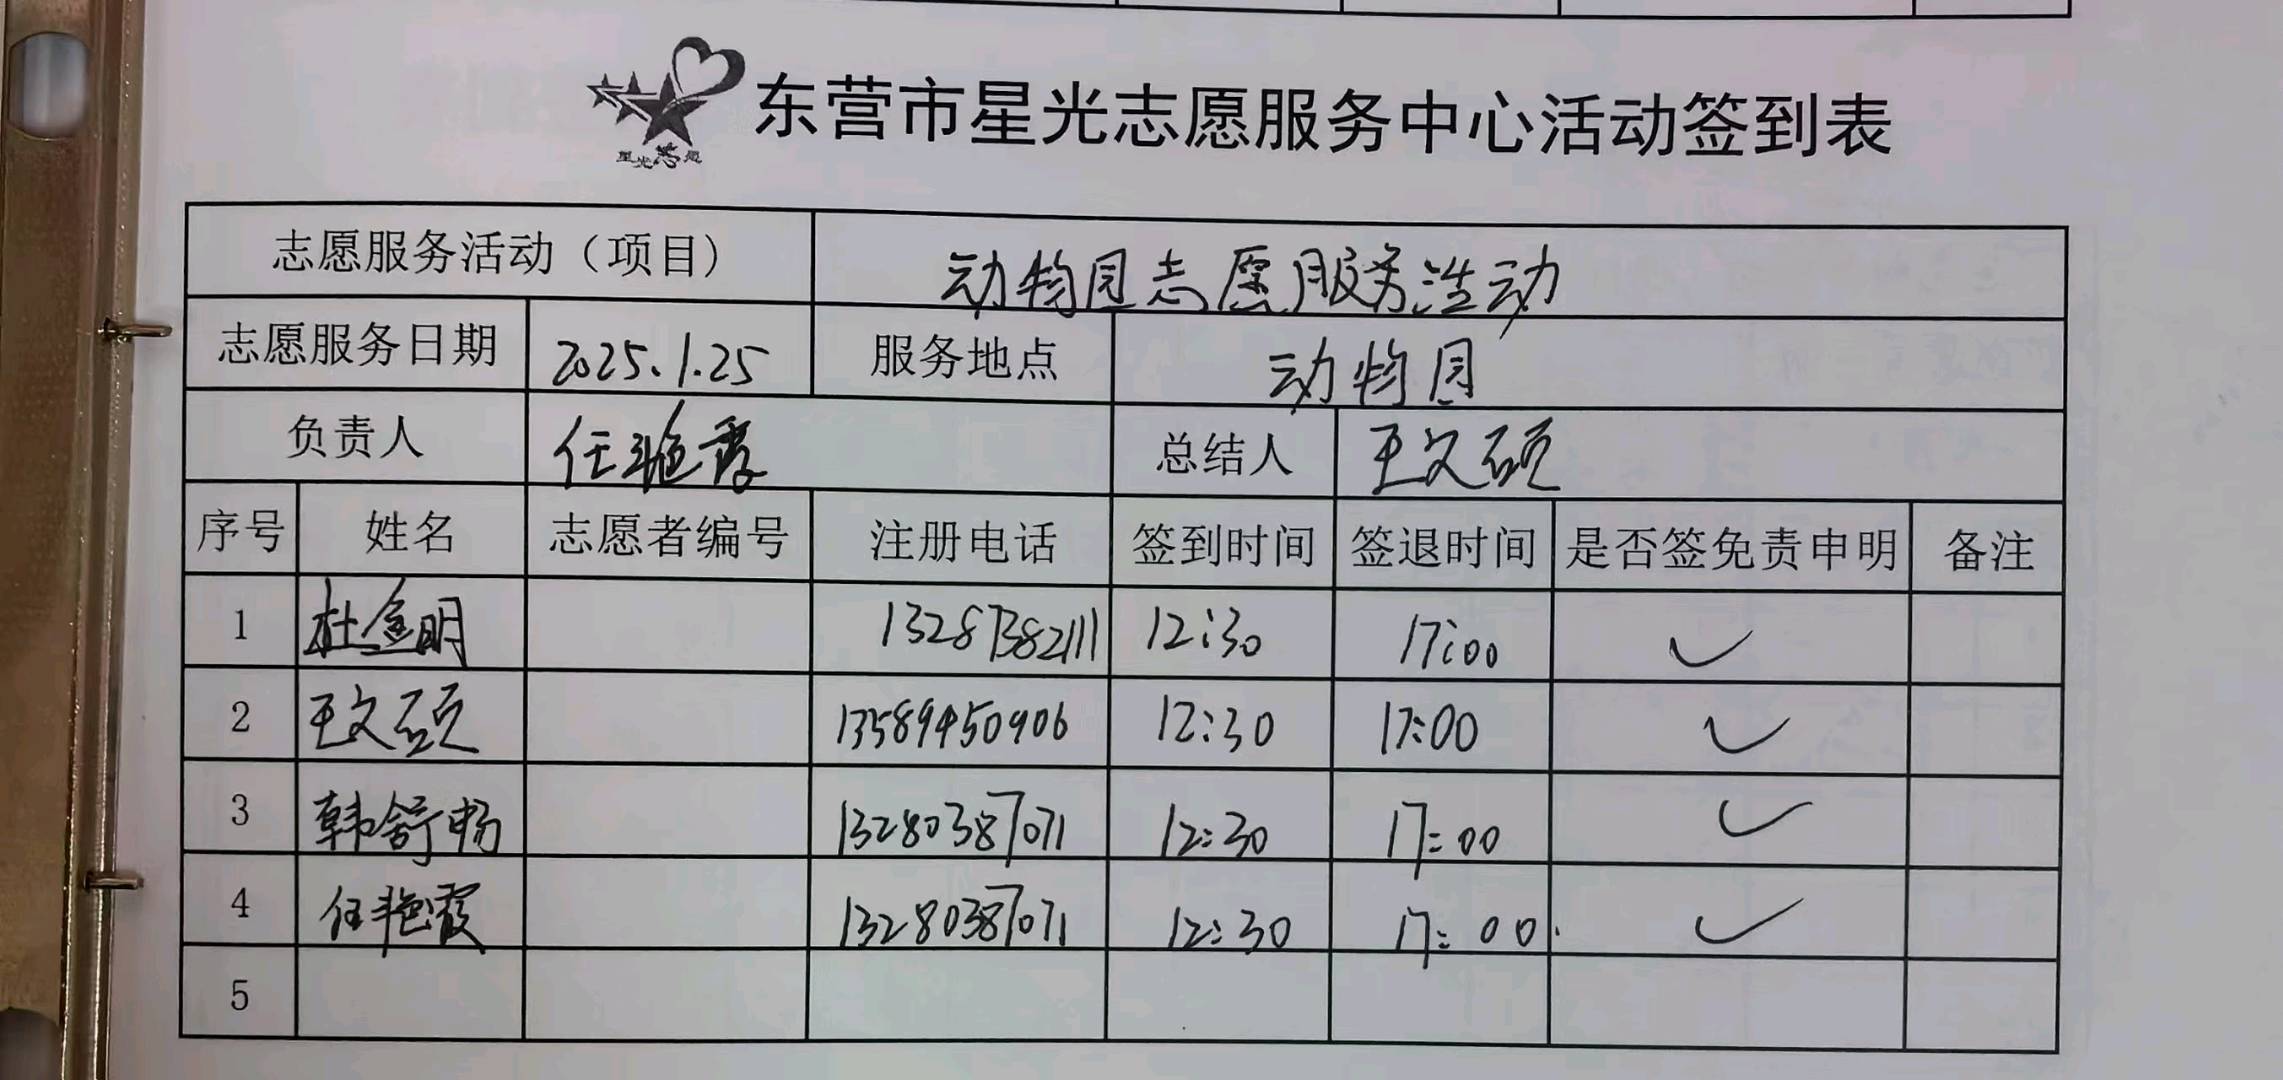 星光志愿
东营市星光志愿服务中心活动签到表
志愿服务活动（项目） 动物园志愿服务活动
志愿服务日期 2025.1.25 服务地点 动物园
负责人 任艳霞 总结人 王文硕
序号 姓名 志愿者编号 注册电话 签到时间 签退时间 是否签免责申明 备注
1 杜金明 13287382111 12:30 17:00 ✓
2 王文硕 13589450906 12:30 17:00 ✓
3 韩舒畅 13280387071 12:30 17:00 ✓
4 任艳霞 13280387071 12:30 17:00 ✓
5